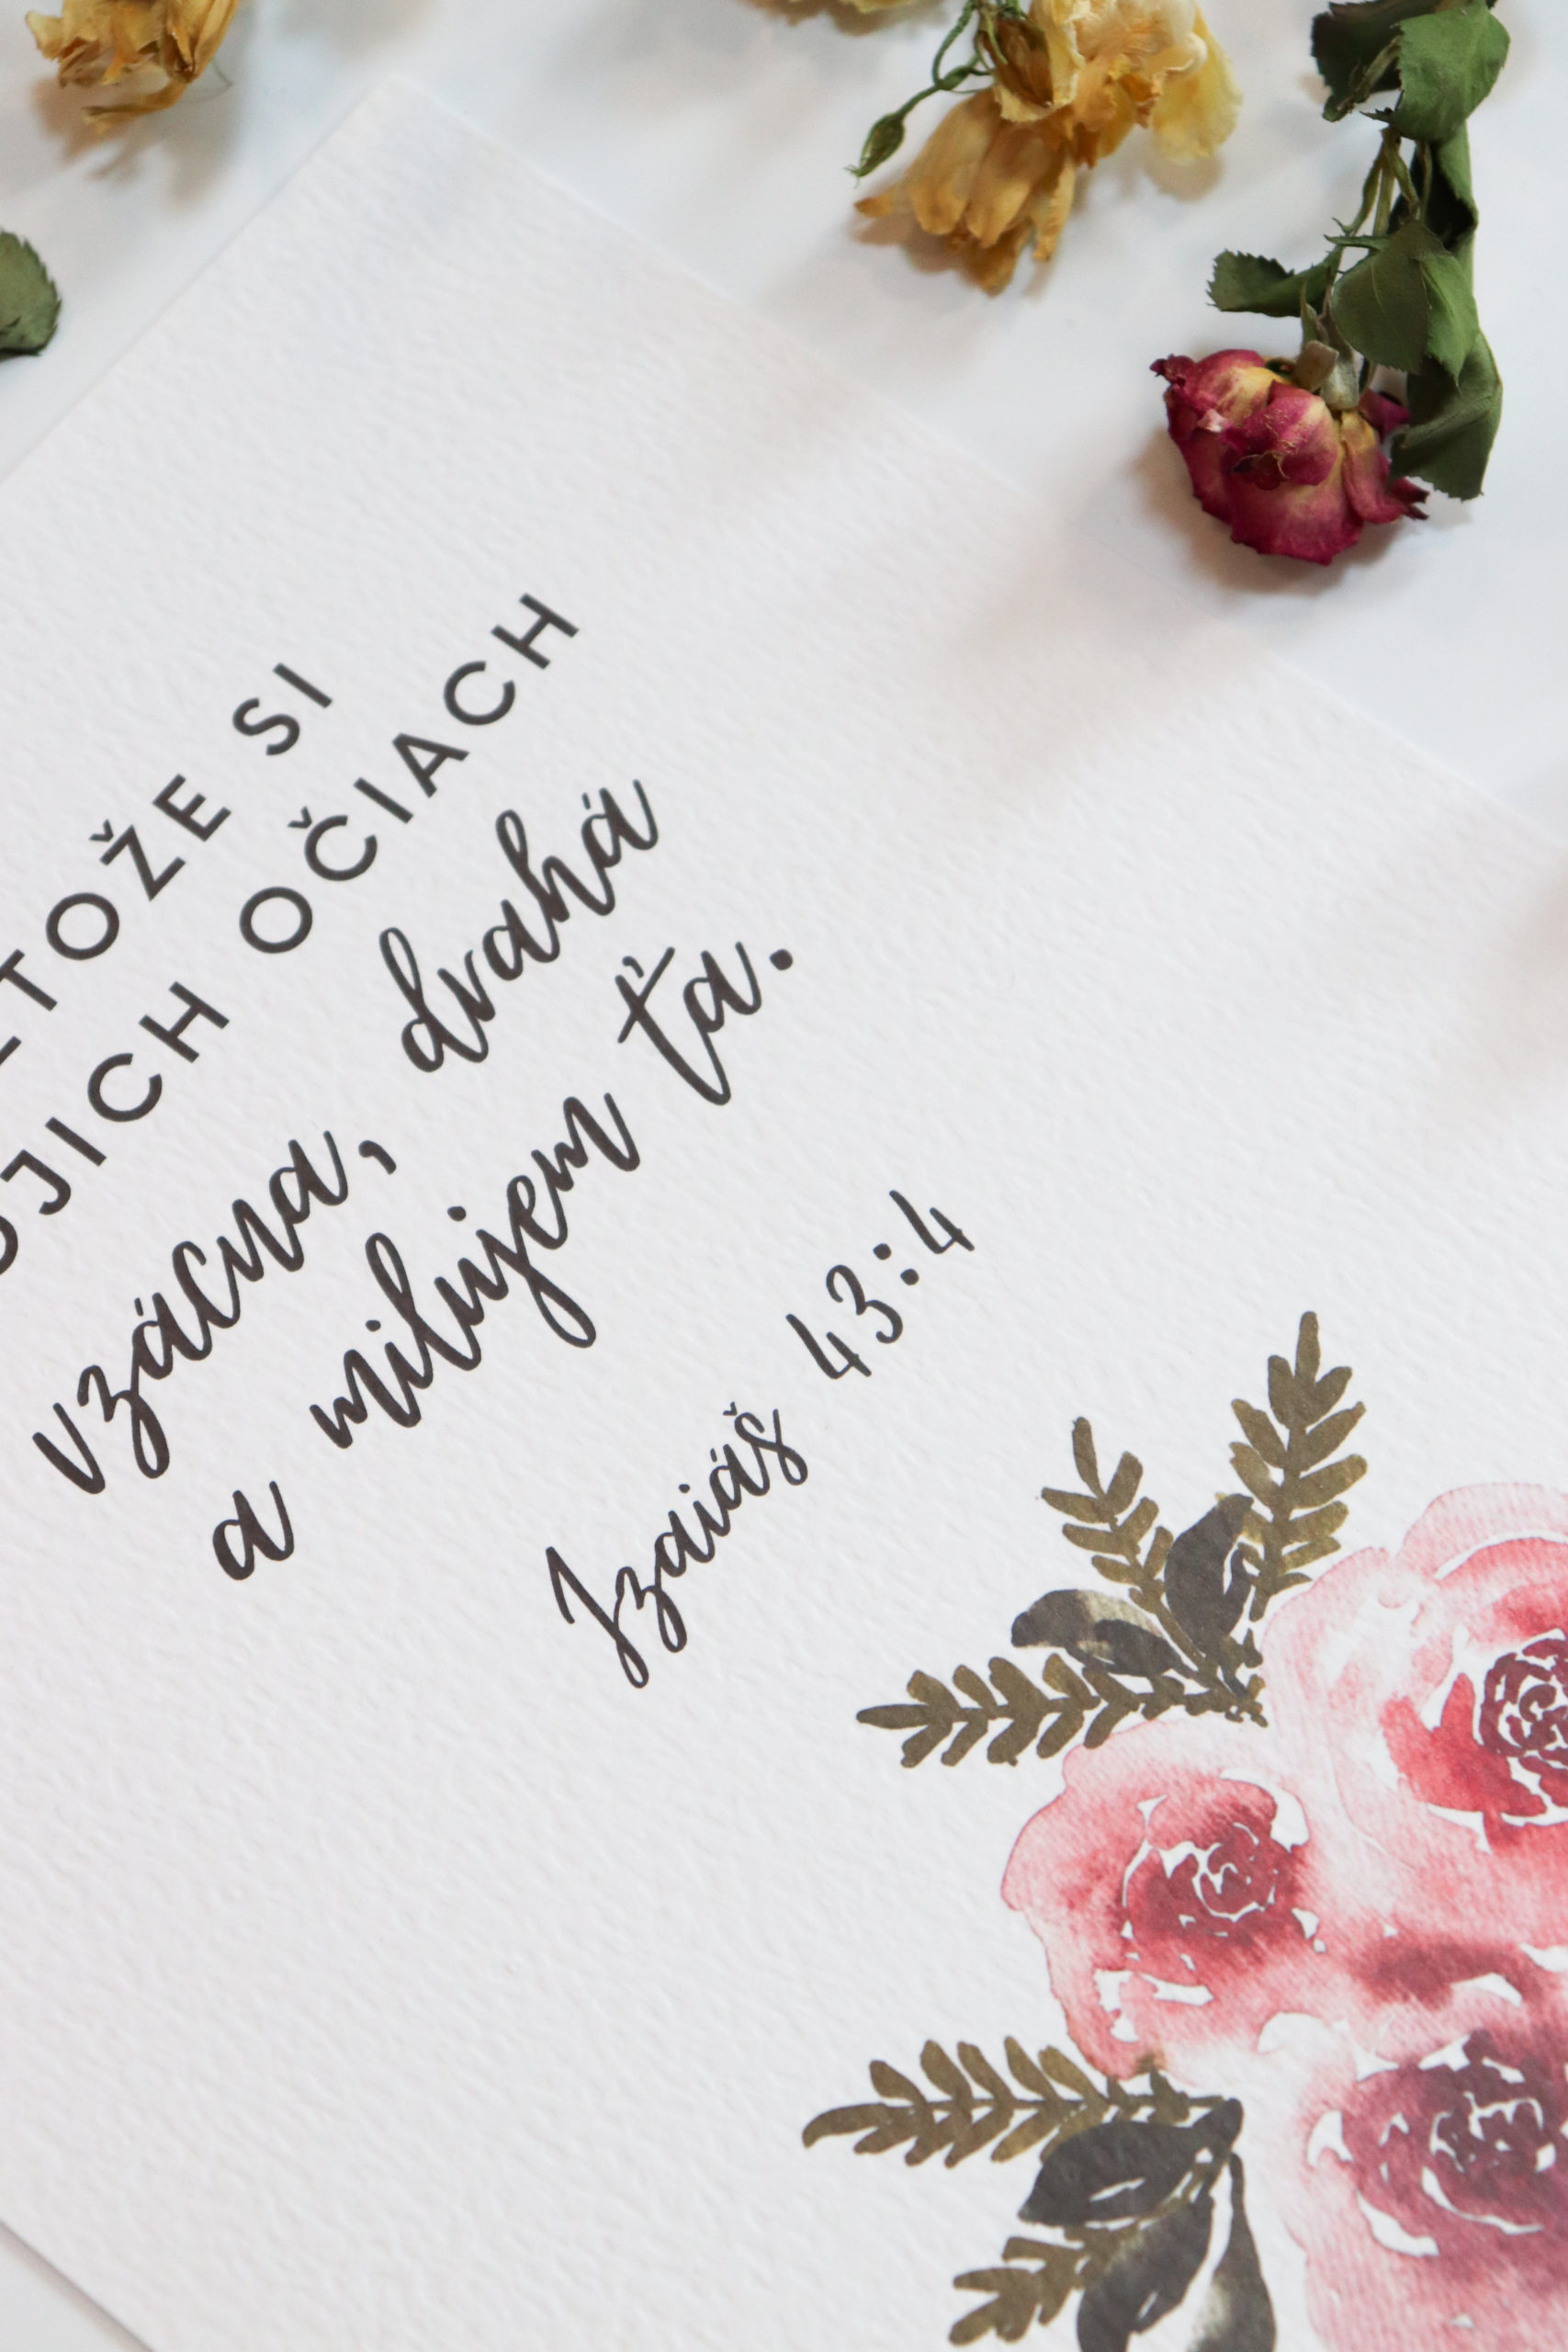 ETOŽE SI
OJICH OČIACH
vzácna, drahá
a milujem ťa.
Izaiáš 43:4